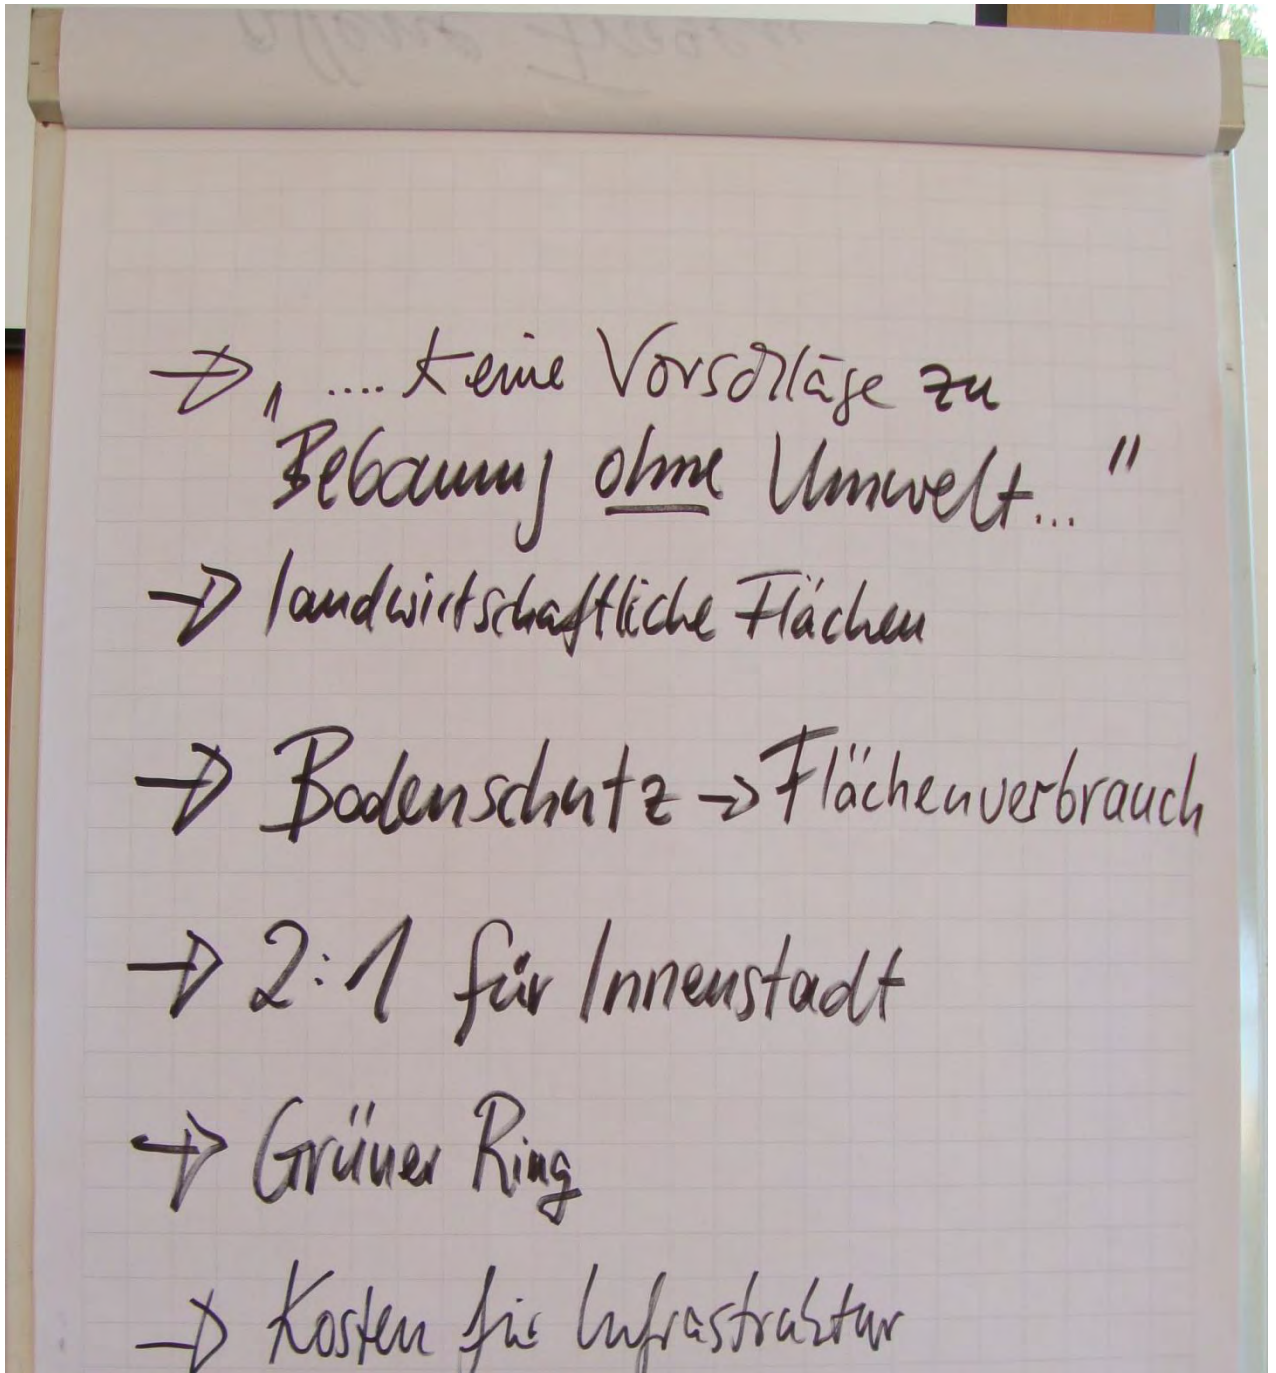 → „ .... keine Vorschläge zu
Bebauung ohne Umwelt..."
→ landwirtschaftliche Flächen
→ Bodenschutz → Flächenverbrauch
→ 2:1 für Innenstadt
→ Grüner Ring
→ Kosten für Infrastruktur